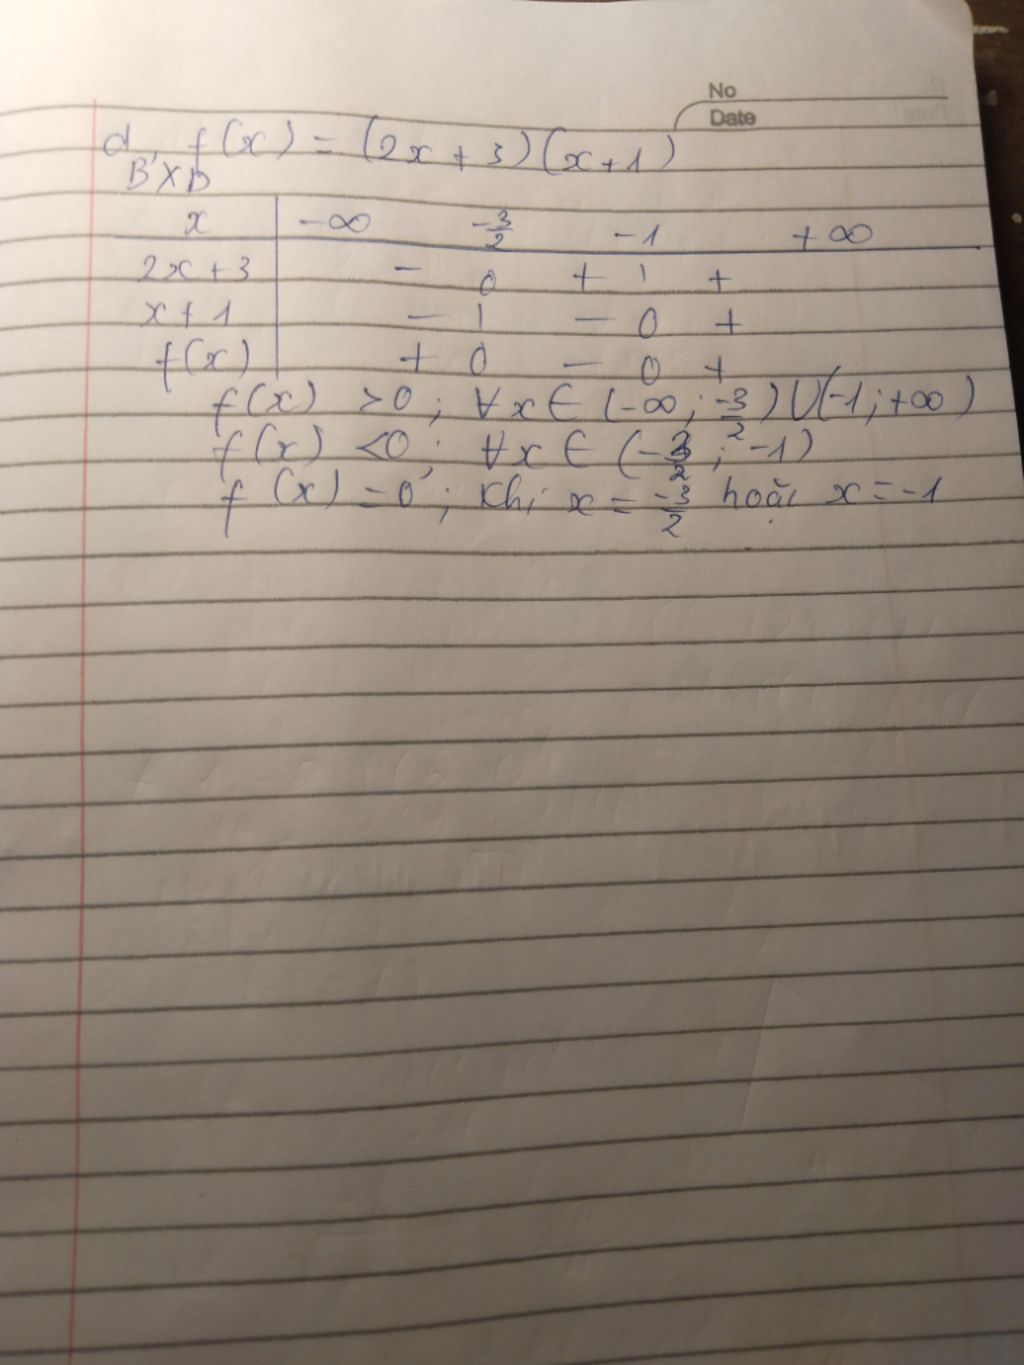 No
Date
d, f(x) = (2x+3)(x+1)
BXD
x -∞ -3/2 -1 +∞
2x+3 - 0 + | +
x+1 - | - 0 +
f(x) + 0 - 0 +
f(x) >0; ∀x∈ (-∞; -3/2) U(-1; +∞)
f(x) <0; ∀x∈ (-3/2; -1)
f(x) =0; Khi x = -3/2 hoặc x = -1